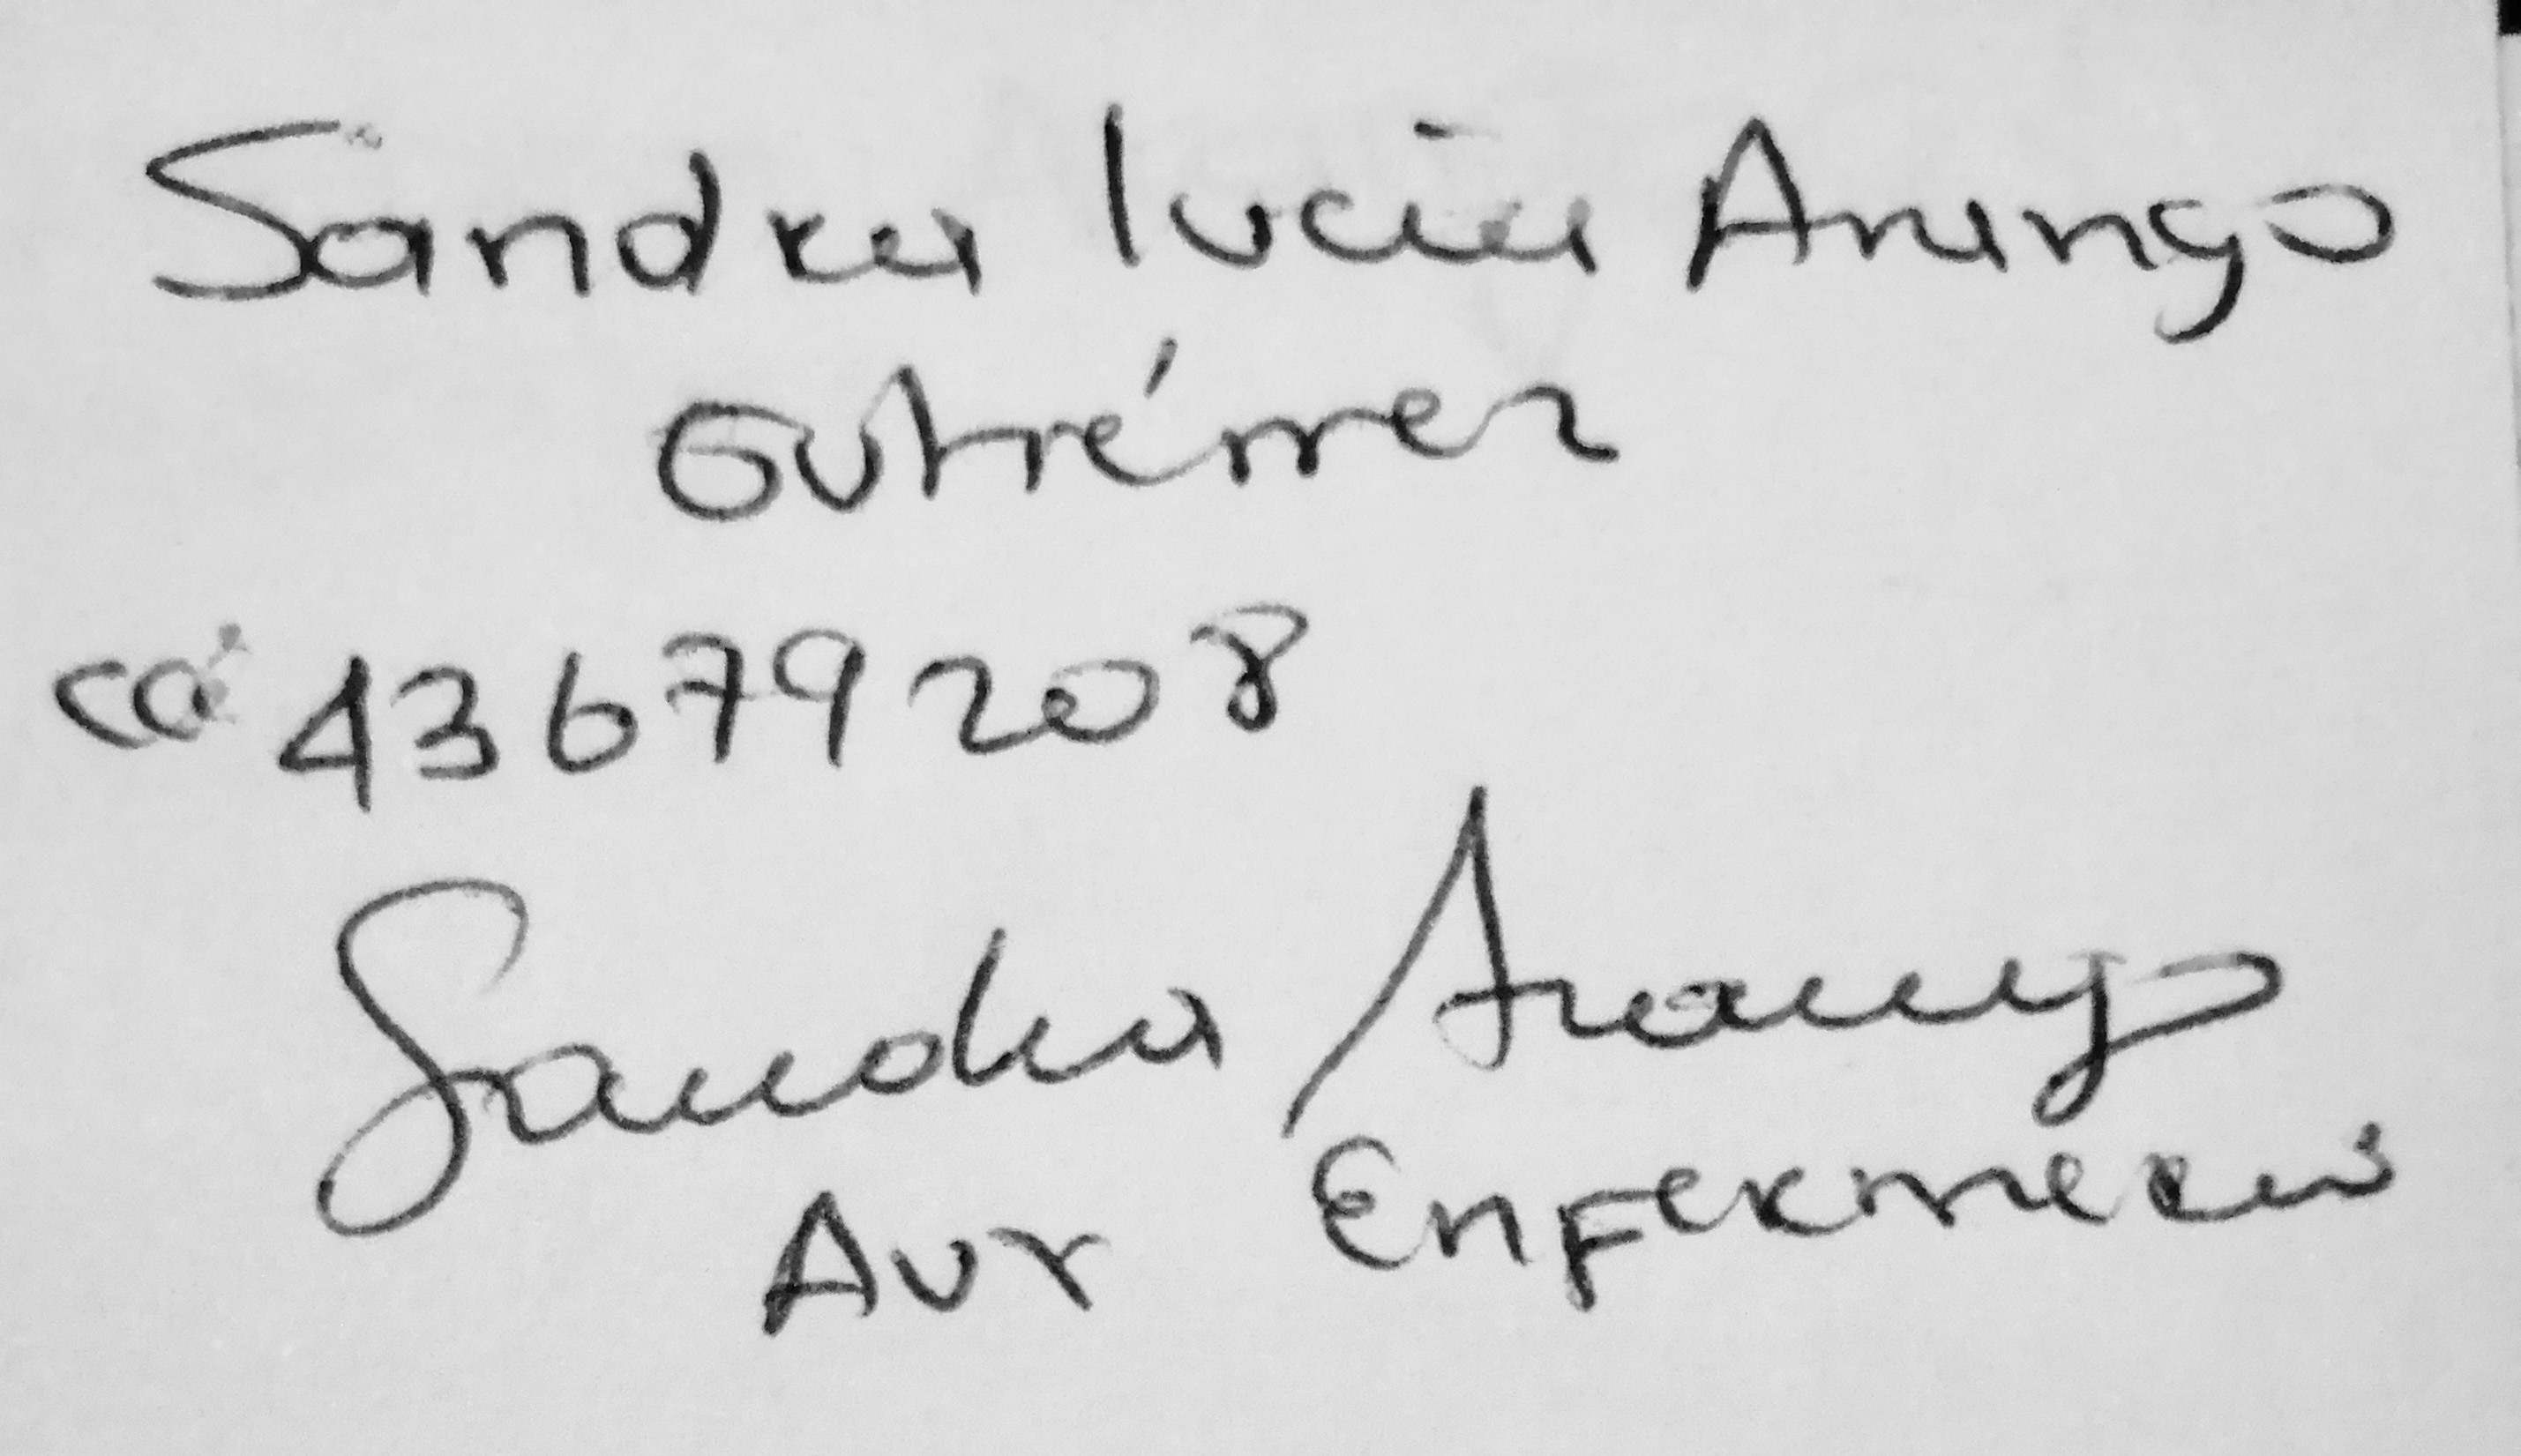 Sandra lucia Arango
Gutiérrez
cc 43679208
Sandra Arango
Aux Enfermería